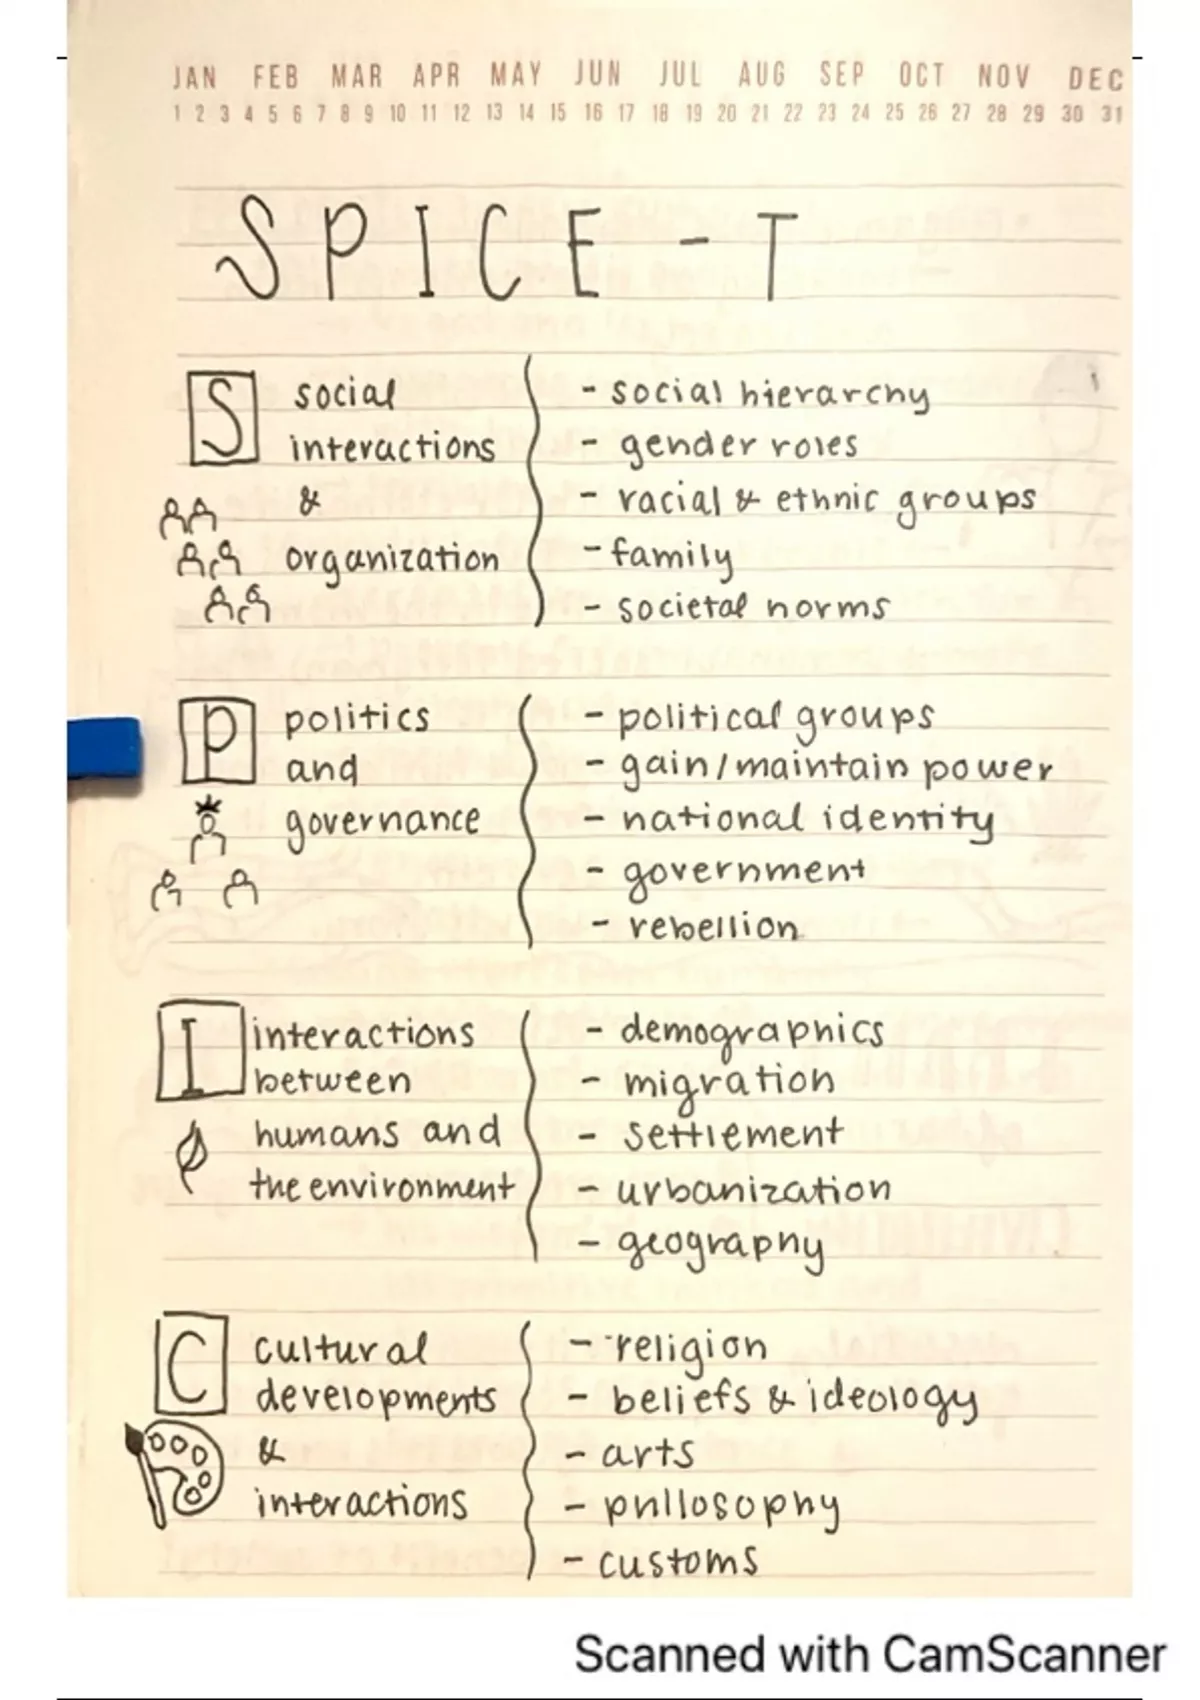 JAN FEB MAR APR MAY JUN JUL AUG SEP OCT NOV DEC
1 2 3 4 5 6 7 8 9 10 11 12 13 14 15 16 17 18 19 20 21 22 23 24 25 26 27 28 29 30 31
SPICE-T
S social
interactions
&
organization
- social hierarchy
- gender roles
- racial & ethnic groups
- family
- societal norms
P politics
and
governance
- political groups
- gain/maintain power
- national identity
- government
- rebellion
I interactions
between
humans and
the environment
- demographics
- migration
- settlement
- urbanization
- geography
C cultural
developments
&
interactions
- religion
- beliefs & ideology
- arts
- philosophy
- customs
Scanned with CamScanner